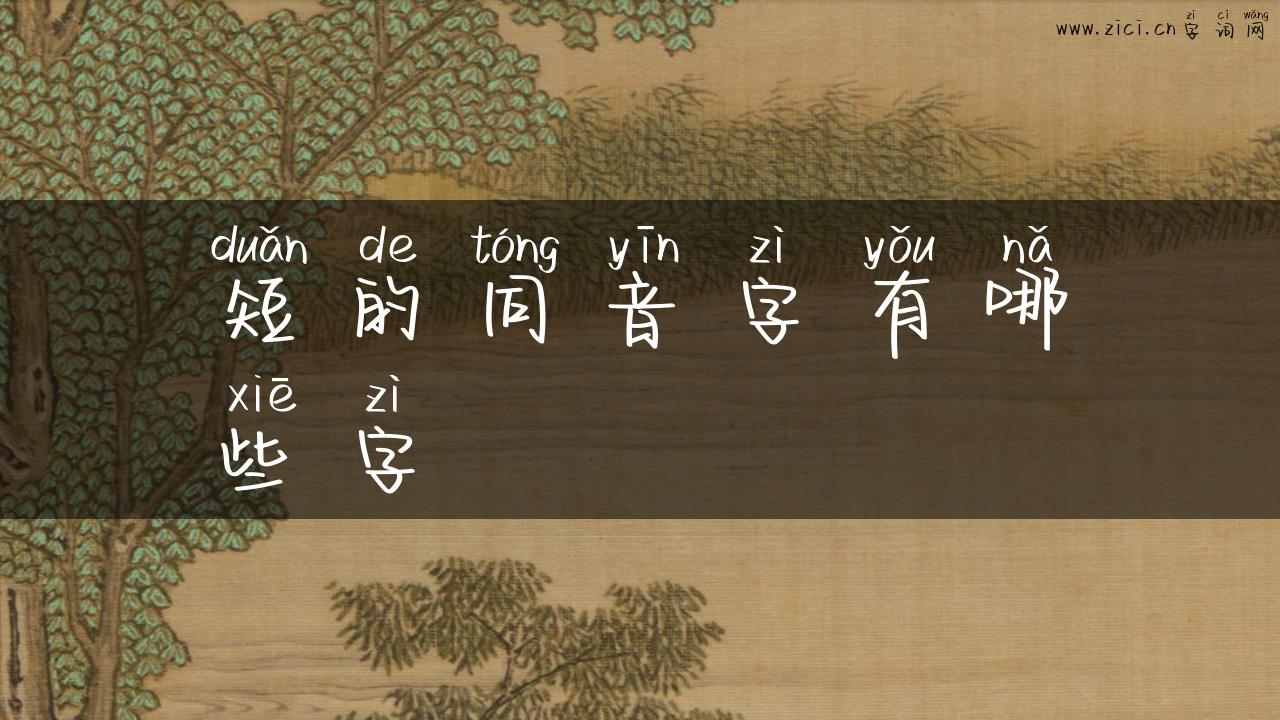 zì cí wǎng
www.zici.cn字词网
duǎn de tóng yīn zì yǒu nǎ
短的同音字有哪
xiē zì
些字